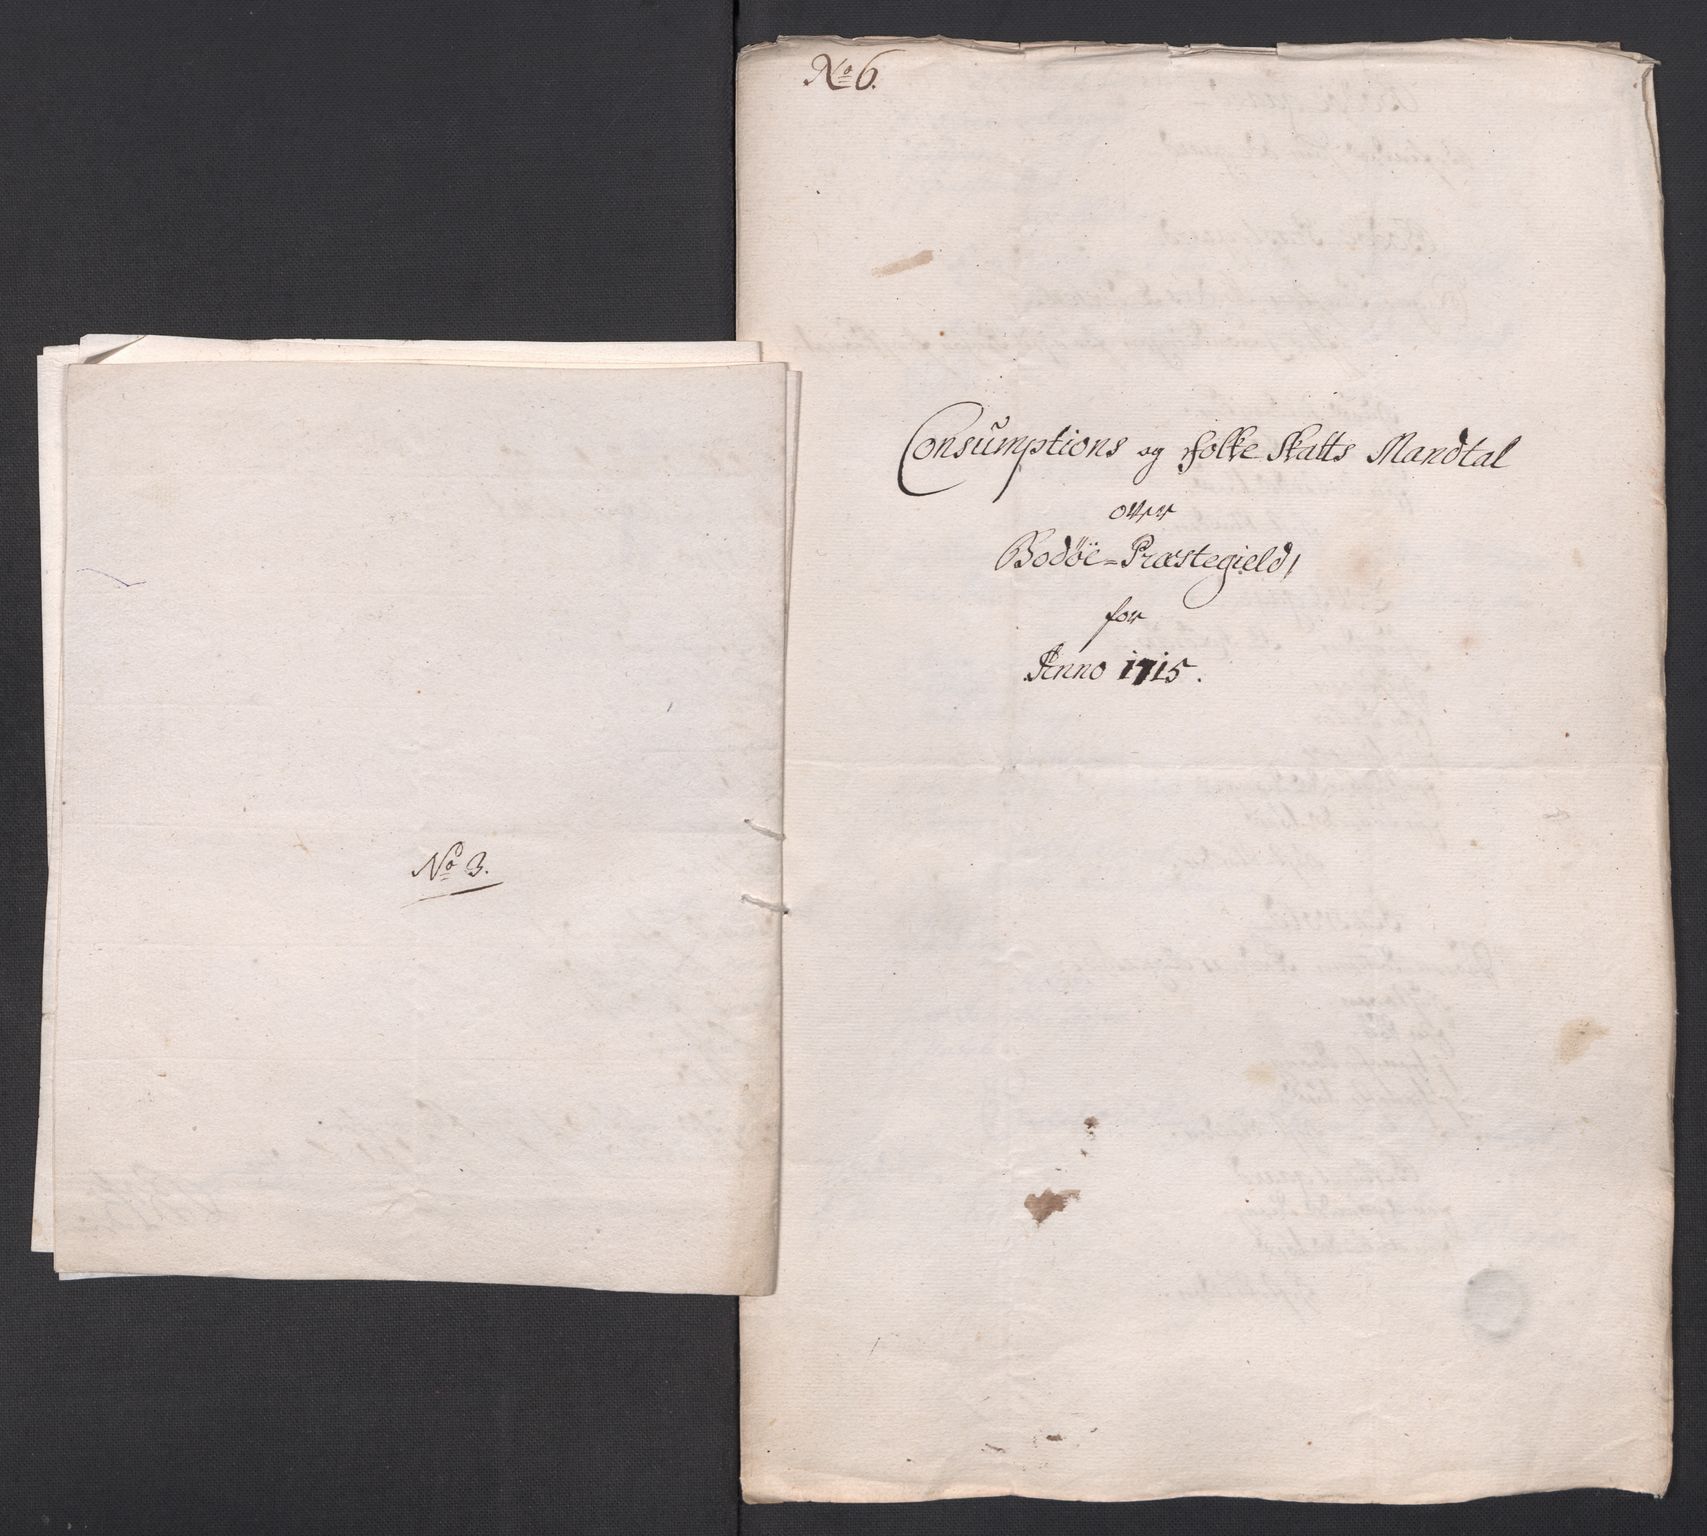 No 3.
No 6.
Consumptions og Folke Skatts Mandtal
over
Bodöe=Præstegield,
for
Anno 1715.